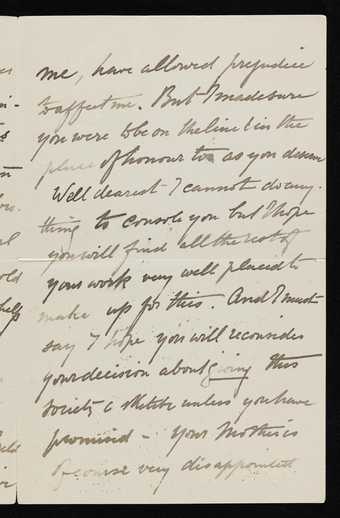 me, have allowed prejudice
to affect me. But I made sure
you were to be on the line & in the
place of honour too as you deserve
Well dearest I cannot do any-
thing to console you but I hope
you will find all the rest of
your work very well placed to
make up for this. And I must
say I hope you will reconsider
your decision about giving this
Society a sketch unless you have
promised - Your Mother is
of course very disappointed